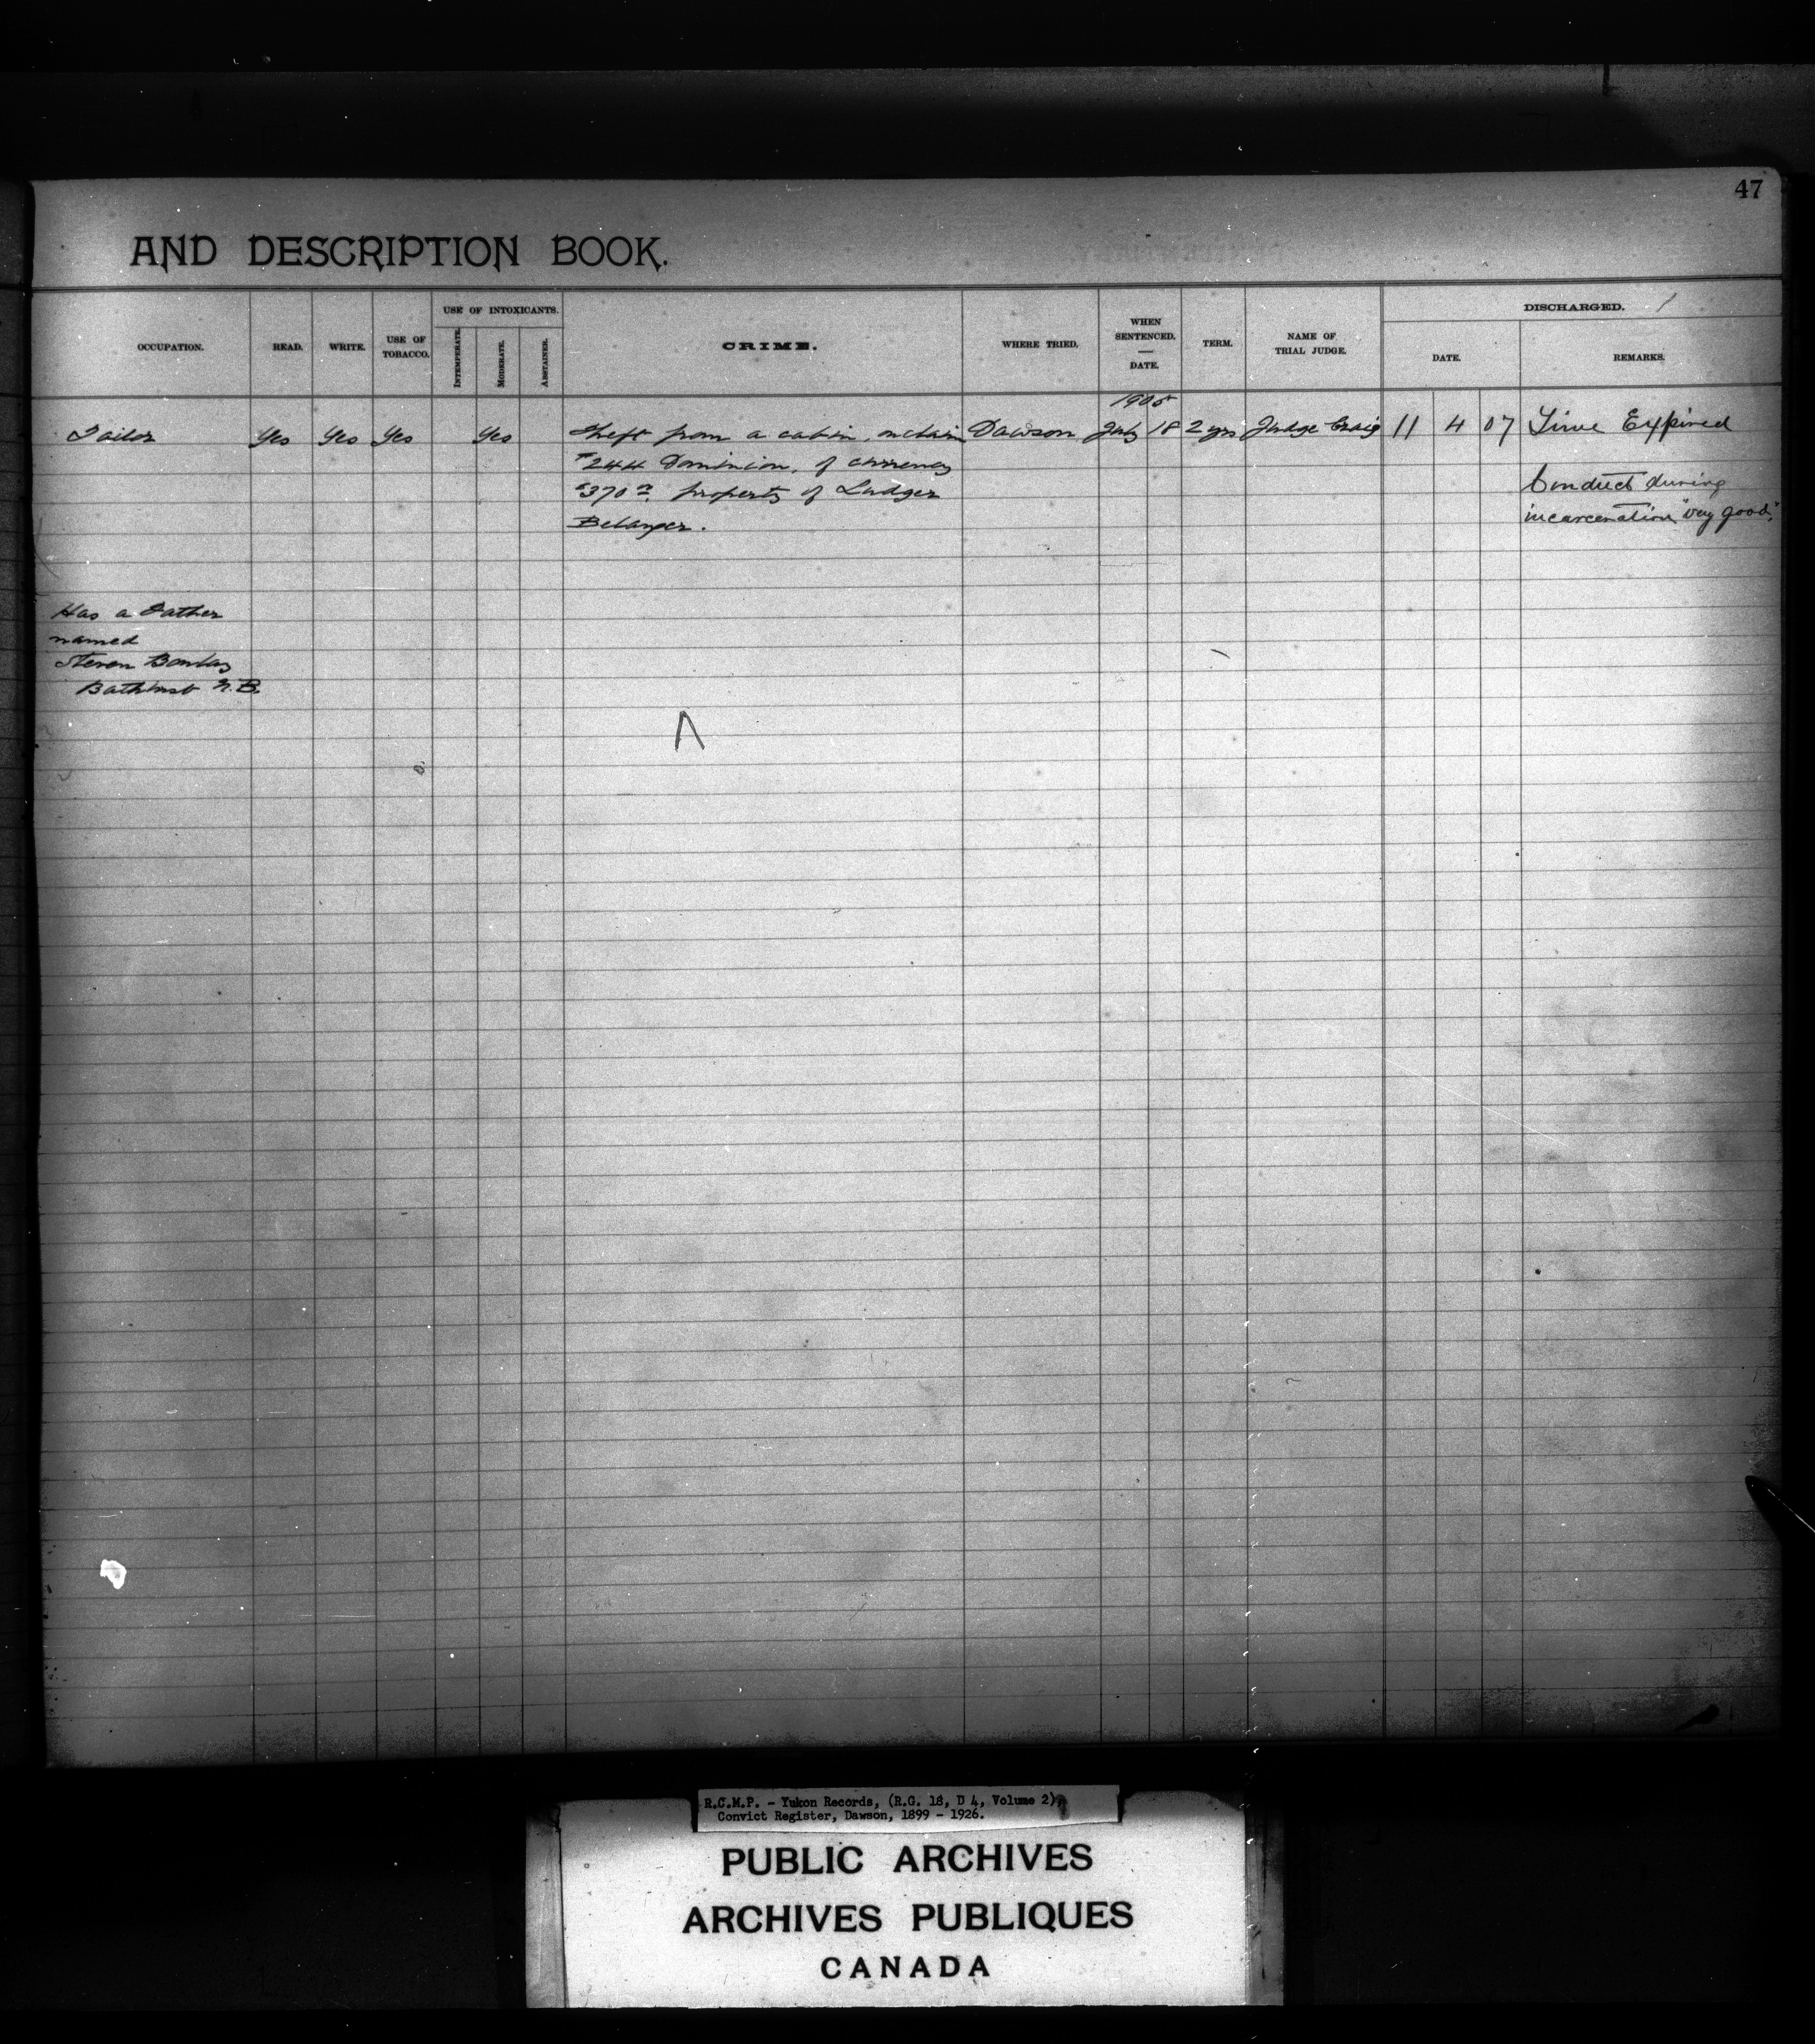 47
AND DESCRIPTION BOOK.
OCCUPATION. READ. WRITE. USE OF TOBACCO. USE OF INTOXICANTS. INTEMPERATE. MODERATE. ABSTAINER. CRIME. WHERE TRIED. WHEN SENTENCED. — DATE. TERM. NAME OF TRIAL JUDGE. DISCHARGED. DATE. REMARKS.
1905
Tailor Yes Yes Yes Yes Theft from a cabin, on claim Dawson July 18 2 yrs Judge Craig 11 4 07 Time Expired
#244 Dominion, of currency
$370 property of Ludger
Belanger.
Conduct during
incarceration "very good."
Has a Father
named
Steven
Bathurst N.B.
R.C.M.P. - Yukon Records, (R.G. 18, D 4, Volume 2),
Convict Register, Dawson, 1899 - 1926.
PUBLIC ARCHIVES
ARCHIVES PUBLIQUES
CANADA